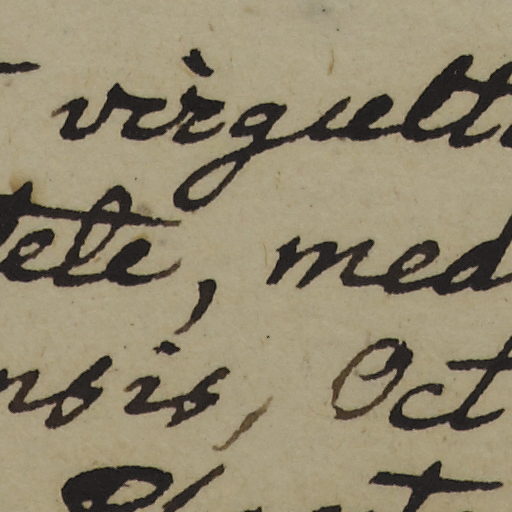 virgult
tele, med
nsis, Oct